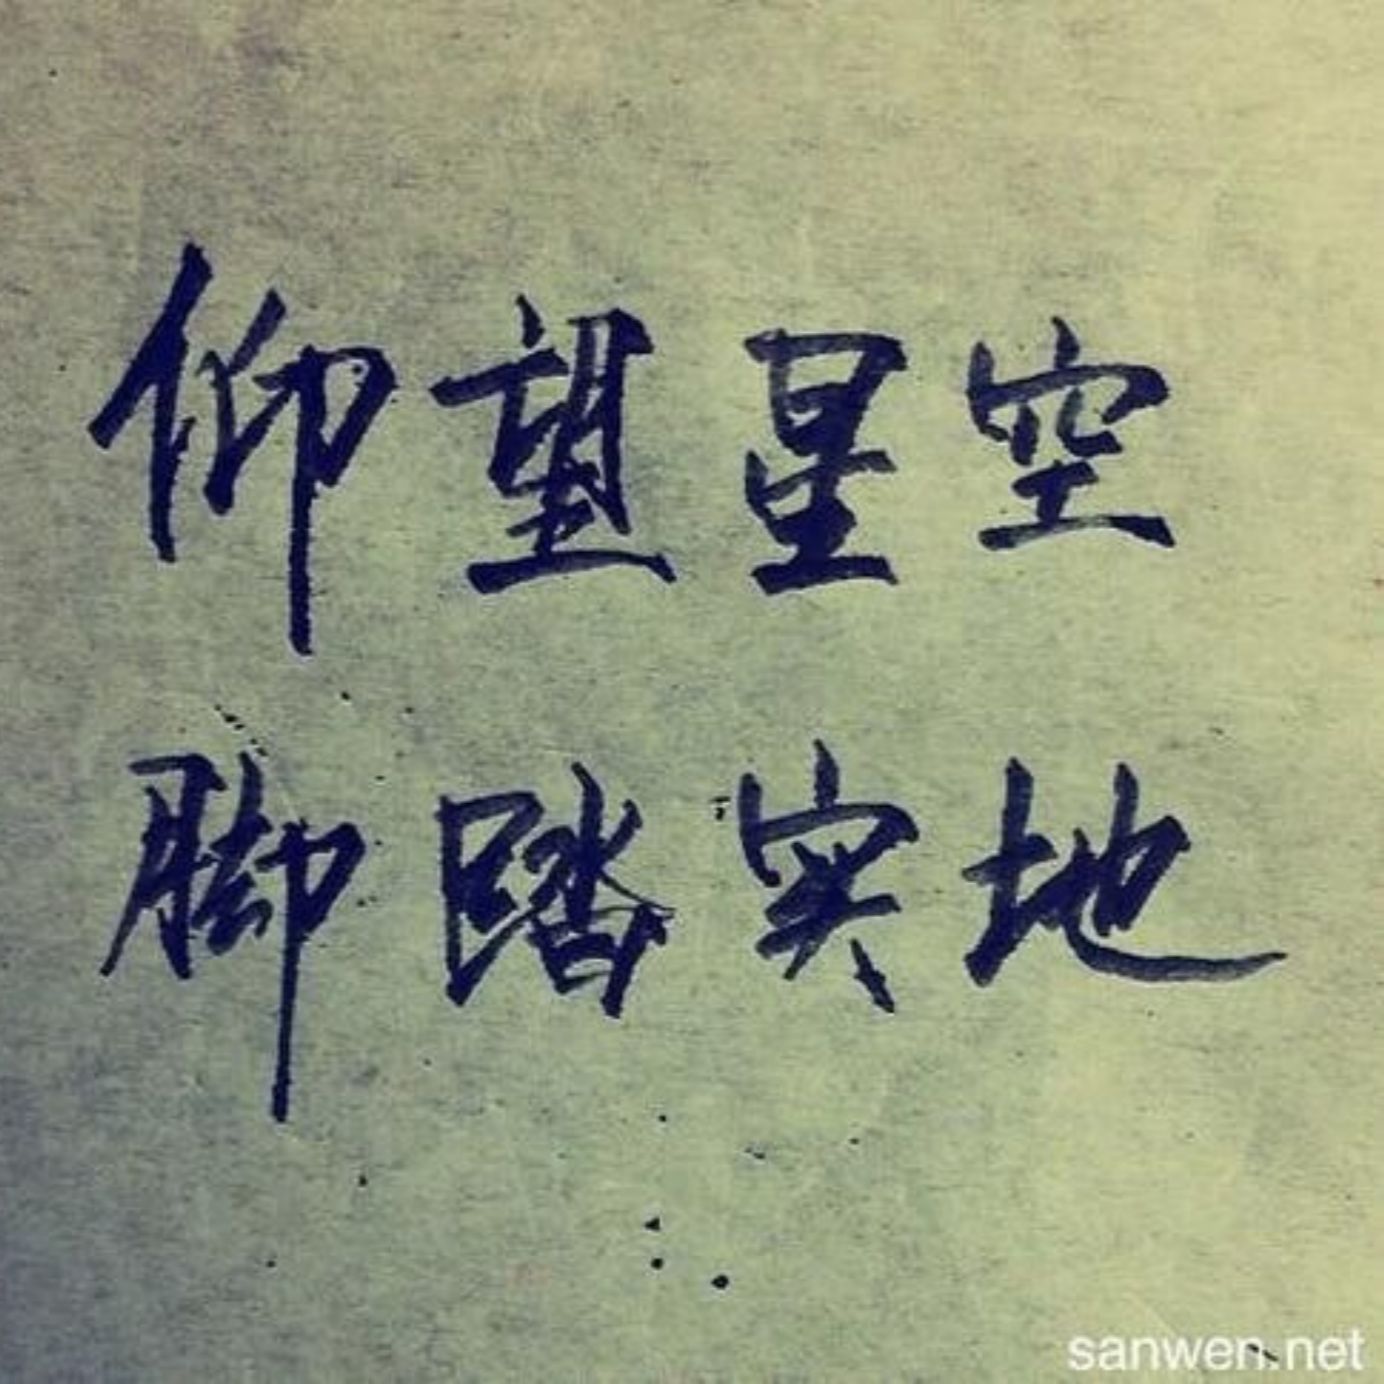 仰望星空
脚踏实地
sanwen.net